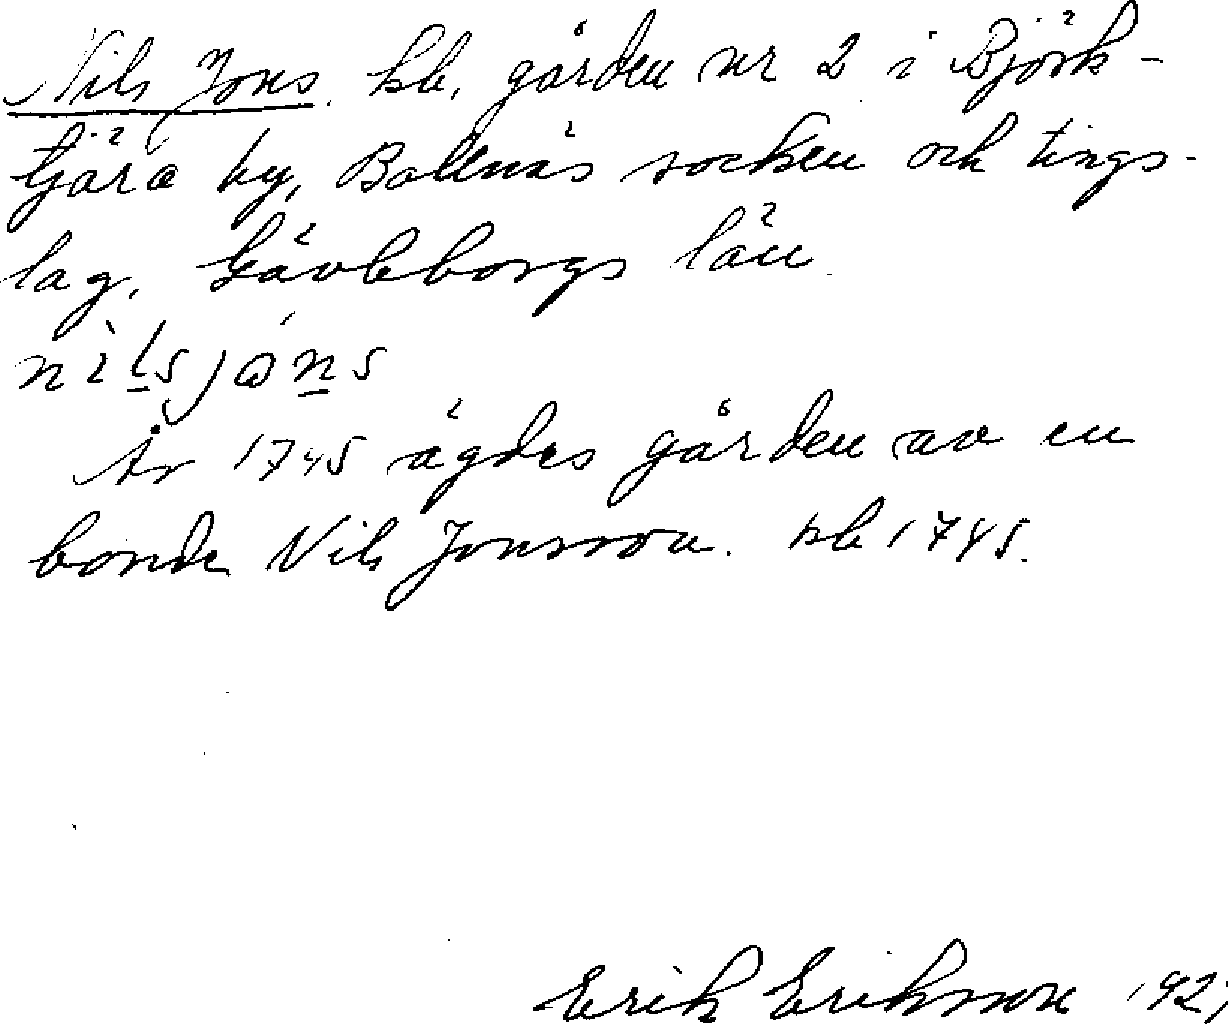 Nils Jons. hb. gården nr 2 i Björk-
tjära by, Bollnäs socken och tings-
lag, Gävleborgs län.
nilsjons
År 1745 ägdes gården av en
bonde Nils Jonsson. hb 1745.
Erik Eriksson 1927